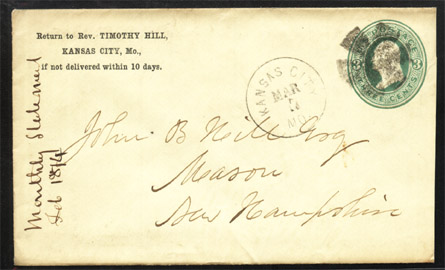 Return to Rev. TIMOTHY HILL,
KANSAS CITY, Mo.,
if not delivered within 10 days.
KANSAS CITY
MAR
MO
CENTS
Monthly Statement
Feb 1874
John B Hill Esq
Mason
New Hampshire